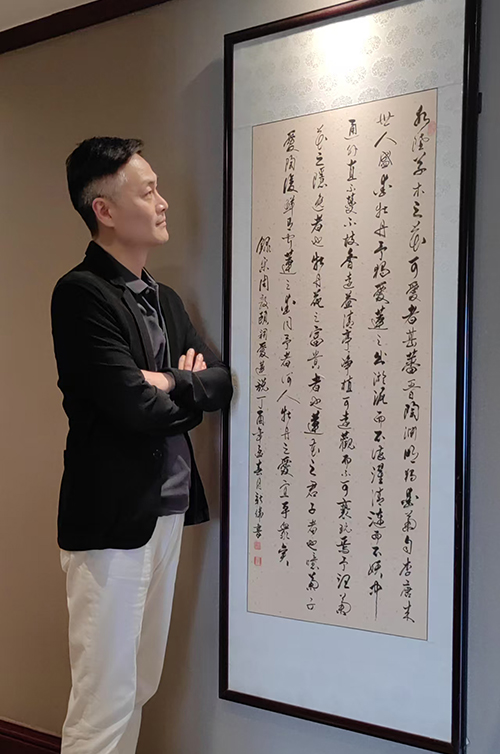 水陸草木之花可愛者甚蕃晉陶淵明獨愛菊自李唐來
世人盛愛牡丹予獨愛蓮之出淤泥而不染濯清漣而不妖中
通外直不蔓不枝香遠益清亭亭净植可遠觀而不可褻玩焉予謂菊
花之隱逸者也牡丹花之富貴者也蓮花之君子者也噫菊之
愛陶後鮮有聞蓮之愛同予者何人牡丹之愛宜乎眾矣
錄宋周敦頤愛蓮說丁酉年孟春月書